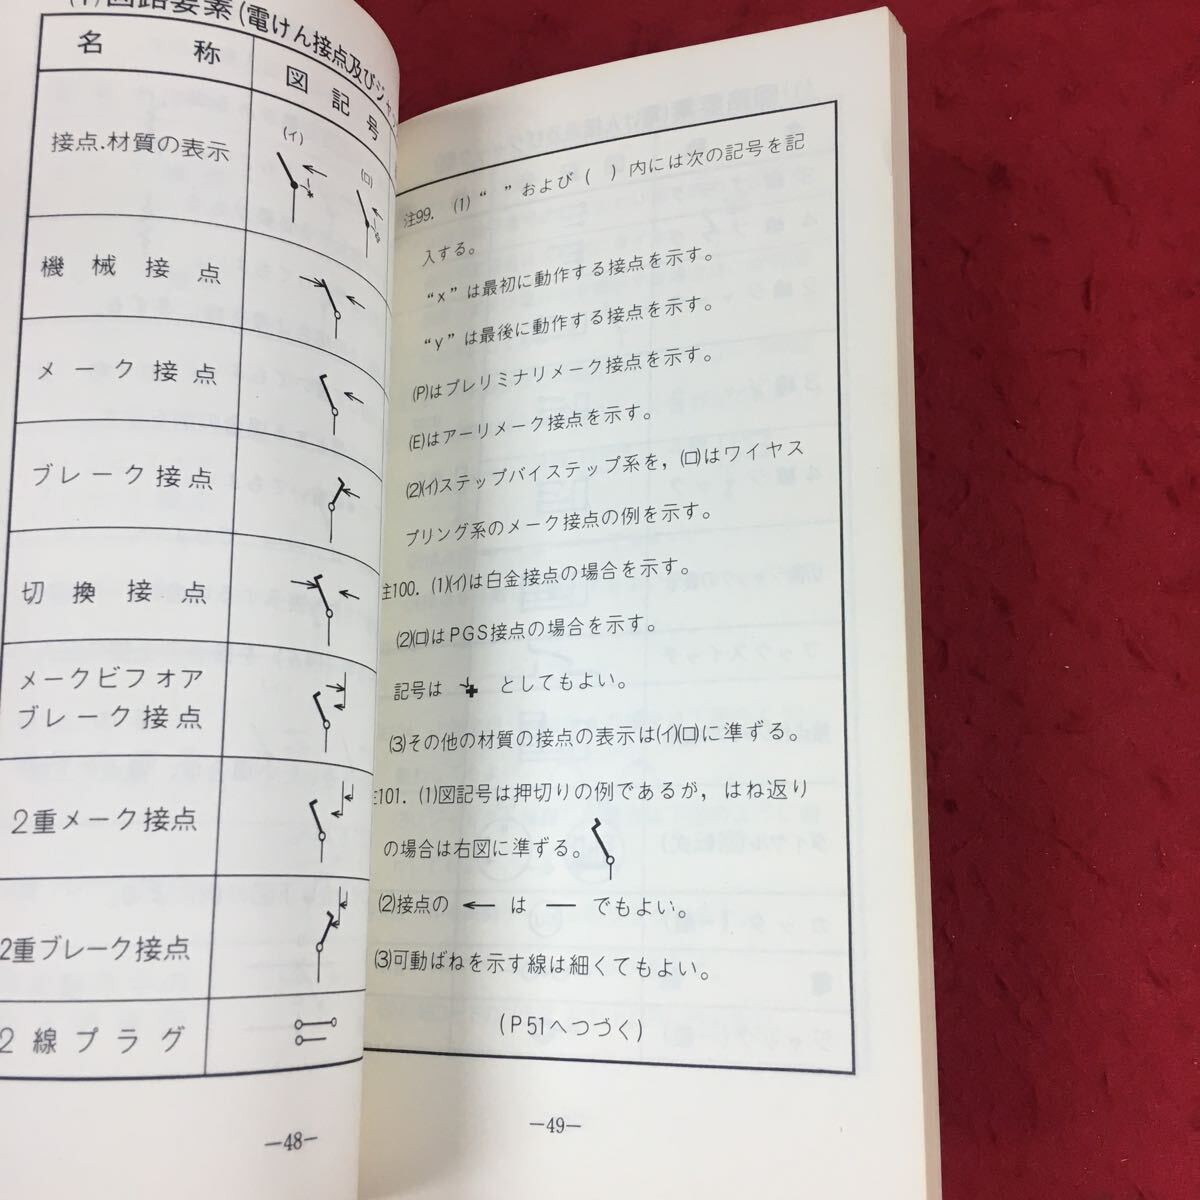 回路要素(電けん接点及びジャ
名称
図記号
接点.材質の表示
(イ)
(ロ)
機械接点
メーク接点
ブレーク接点
切換接点
メークビフオア
ブレーク接点
2重メーク接点
2重ブレーク接点
2線プラグ
—48—
注99. (1)“ ”および( )内には次の記号を記
入する。
“x”は最初に動作する接点を示す。
“y”は最後に動作する接点を示す。
(P)はプレリミナリメーク接点を示す。
(E)はアーリメーク接点を示す。
(2)(イ)ステップバイステップ系を，(ロ)はワイヤス
プリング系のメーク接点の例を示す。
注100. (1)(イ)は白金接点の場合を示す。
(2)(ロ)はPGS接点の場合を示す。
記号は としてもよい。
(3)その他の材質の接点の表示は(イ)(ロ)に準ずる。
注101. (1)図記号は押切りの例であるが，はね返り
の場合は右図に準ずる。
(2)接点の ← は — でもよい。
(3)可動ばねを示す線は細くてもよい。
(P51へつづく)
—49—